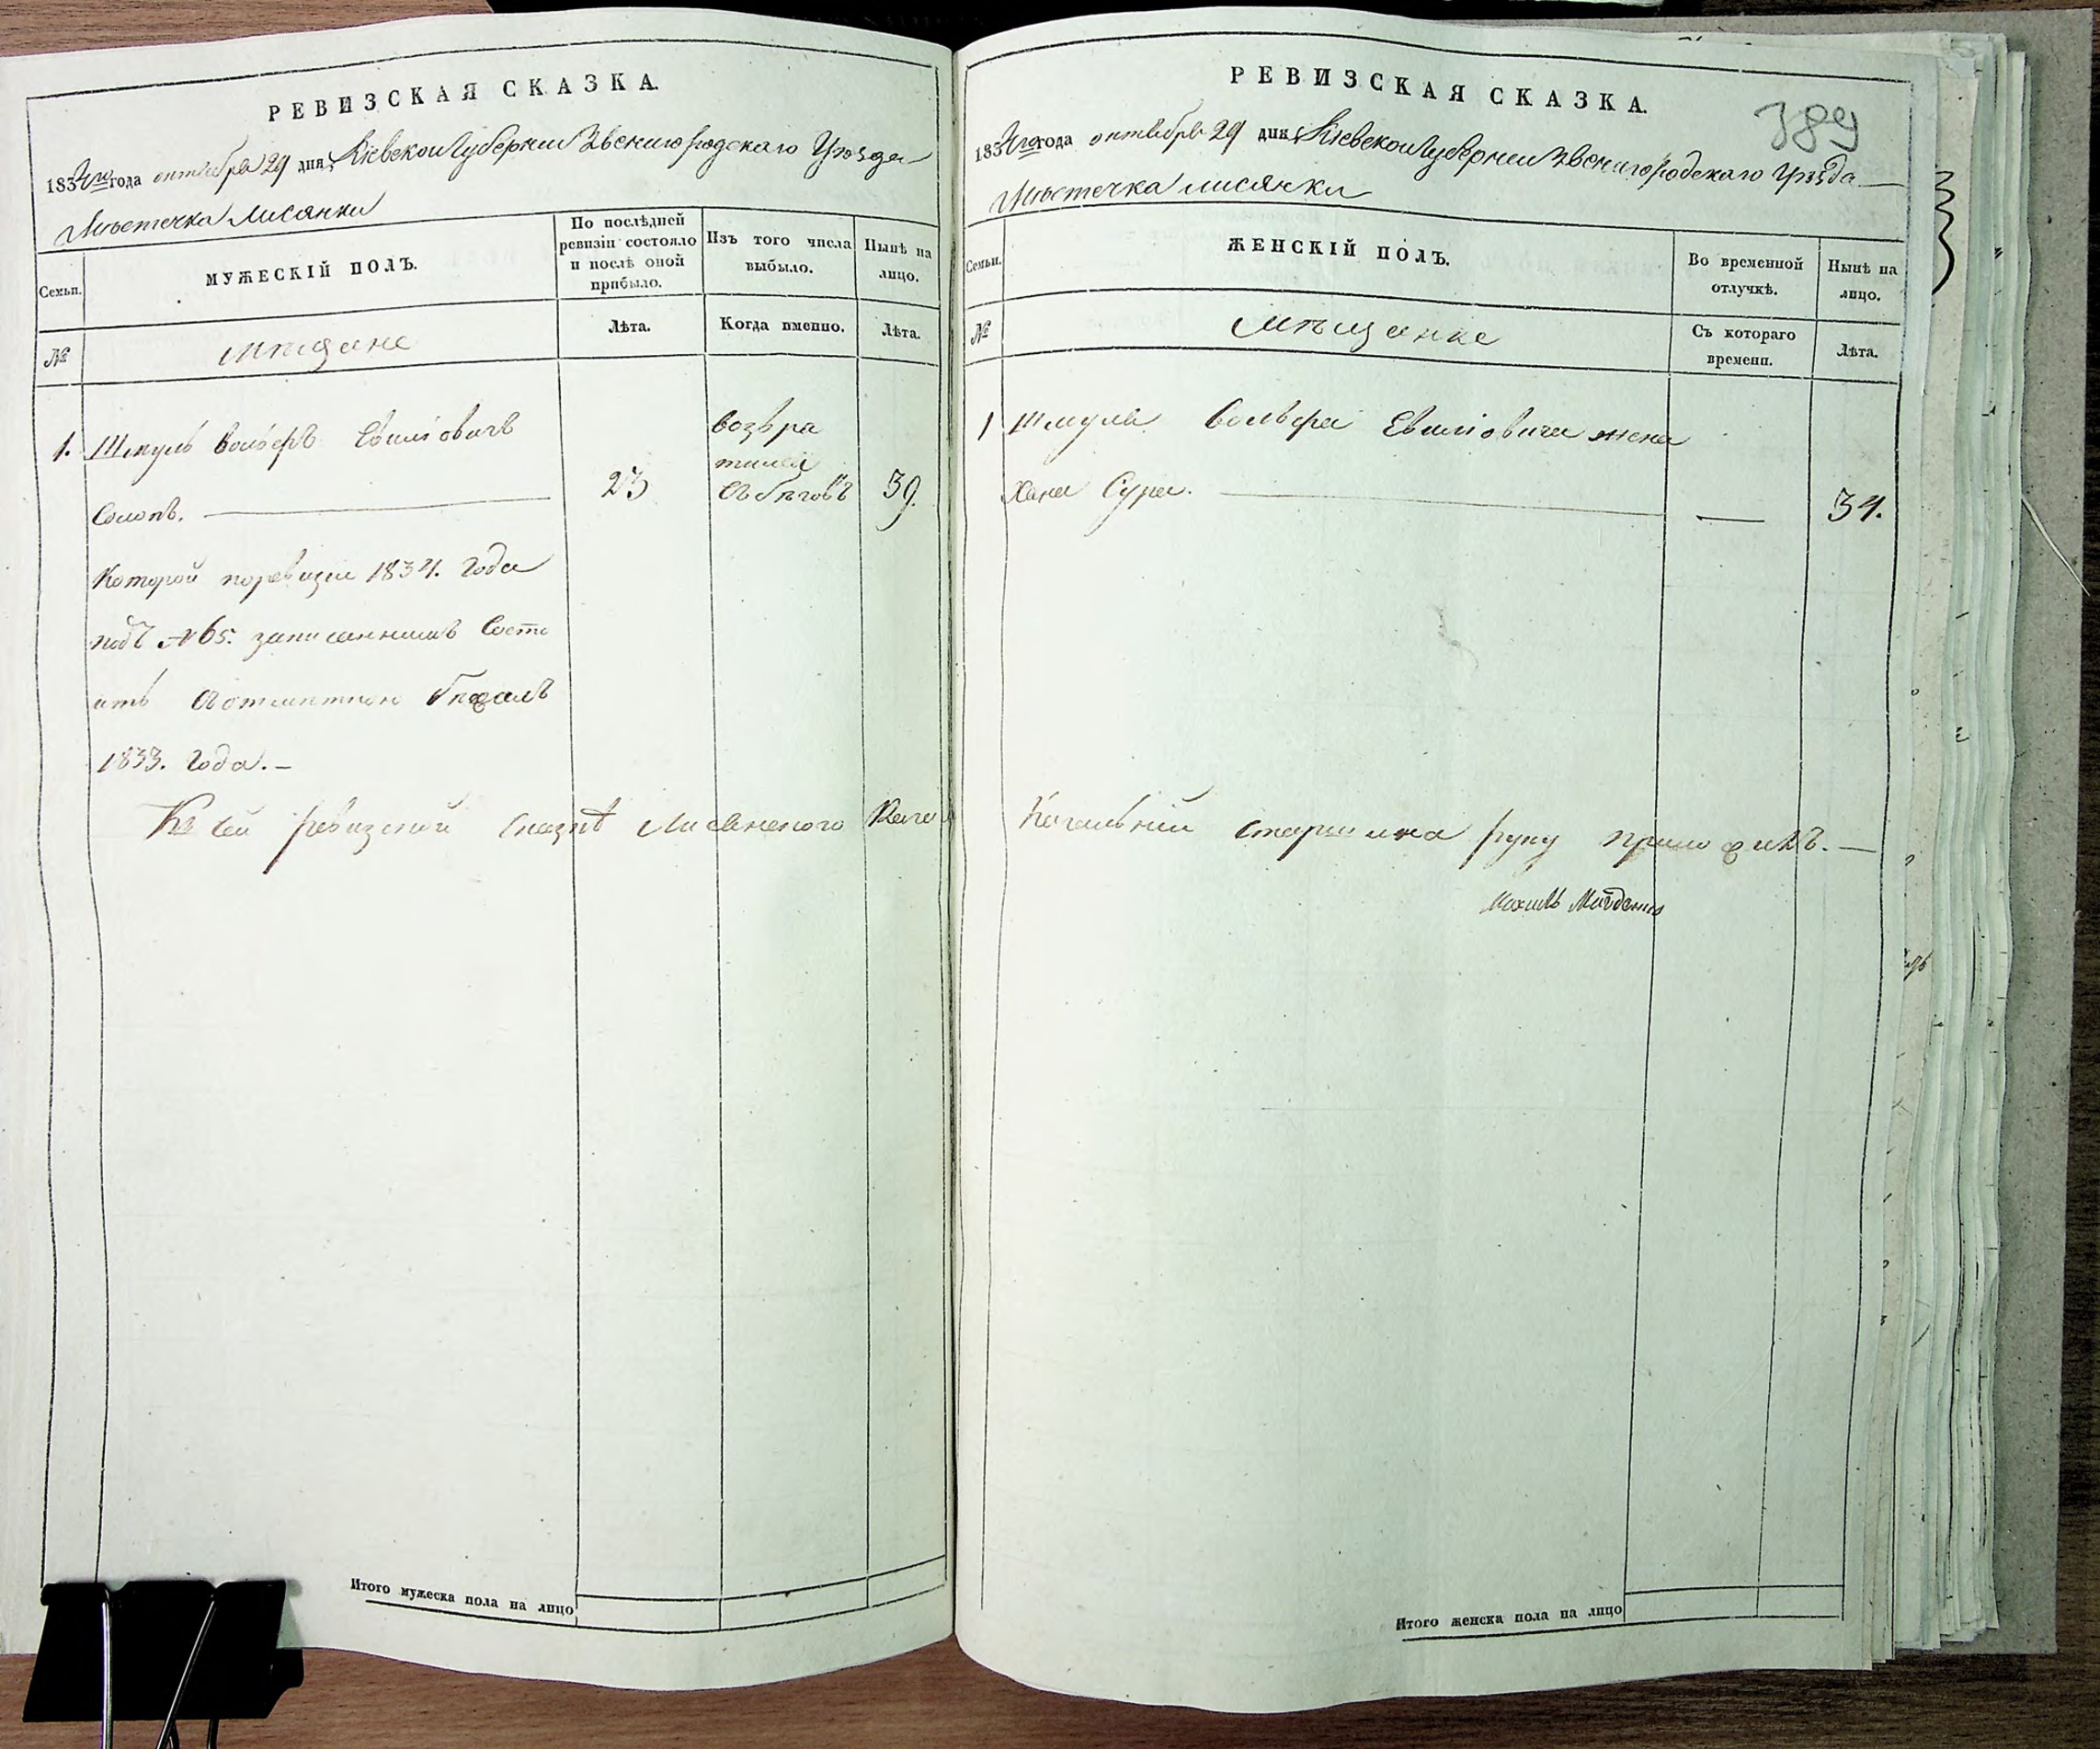 РЕВИЗСКАЯ СКАЗКА.
183 года октября 29 дня Кіевской Губерніи Звенигородскаго Уѣзда
Мѣстечка Лисянки
Семьи.
МУЖЕСКІЙ ПОЛЪ.
По послѣдней ревизіи состояло и послѣ оной прибыло.
Изъ того числа выбыло.
Нынѣ на лицо.
№
мѣщане
Лѣта.
Когда именно.
Лѣта.
1. Шмуль Вольфъ
возвра
тился
23
39.
Которой поревизіи 1834. года
подъ №65. записаннымъ Состо
итъ
1833. года.—
Къ сей ревизской сказкѣ Лисянского Кага
Итого мужеска пола на лицо
РЕВИЗСКАЯ СКАЗКА.
389
183 года октября 29 дня Кіевской Губерніи Звенигородскаго Уѣзда
Мѣстечка лисянки
Семьи.
ЖЕНСКІЙ ПОЛЪ.
Во временной отлучкѣ.
Нынѣ на лицо.
№
мѣщанке
Съ котораго времени.
Лѣта.
1 Шмуля Вольфа жена
Хана Сура.
34.
Кагальній старшина руку приложилъ.—
Итого женска пола на лицо